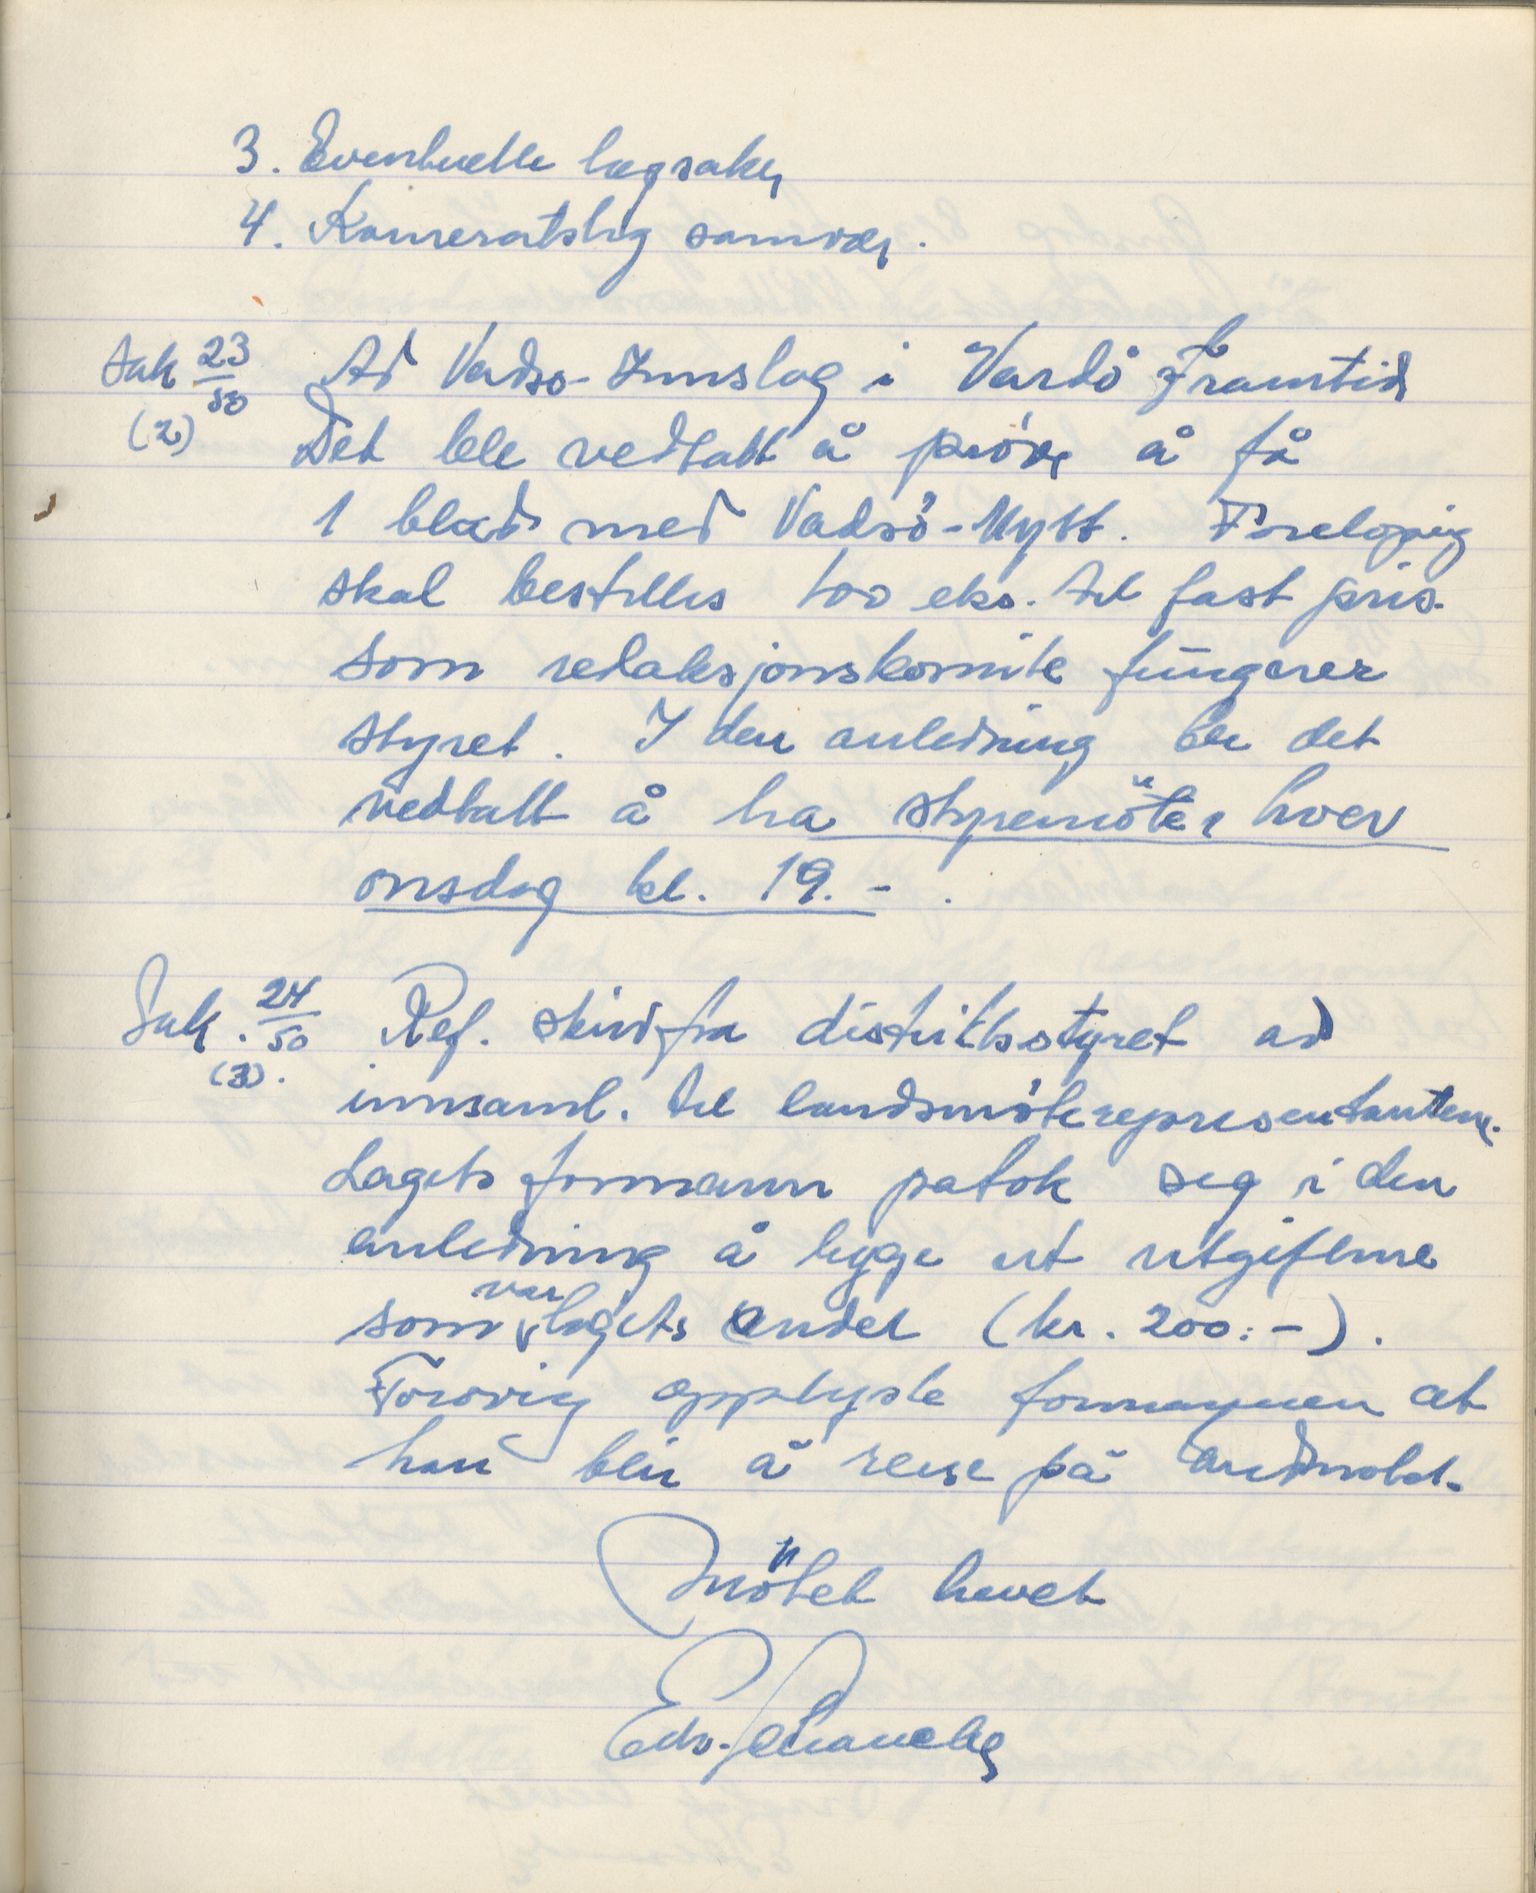 3. Eventuelle lagsaker
4. Kameratslig samvær.
Sak 23/50 Ad Vadsø-Innslag i Vardö Framtid
(2) Det ble vedtatt å pröve å få
1 blad med Vadsö-Nytt. Foreløpig
skal bestilles 100 eks. til fast pris.
Som redaksjonskomite fungerer
styret. I den anledning ble det
vedtatt å ha styremöter hver
onsdag kl. 19.-.
Sak. 24/50 Ref. skriv fra distriktsstyret ad
(3). innsaml. til landsmöterepresentantene.
Lagets formann påtok seg i den
anledning å legge ut utgiftene
som var lagets andel (kr. 200:-).
Forøvrig opplyste formannen at
han blir å reise på
Mötet hevet
Edv.